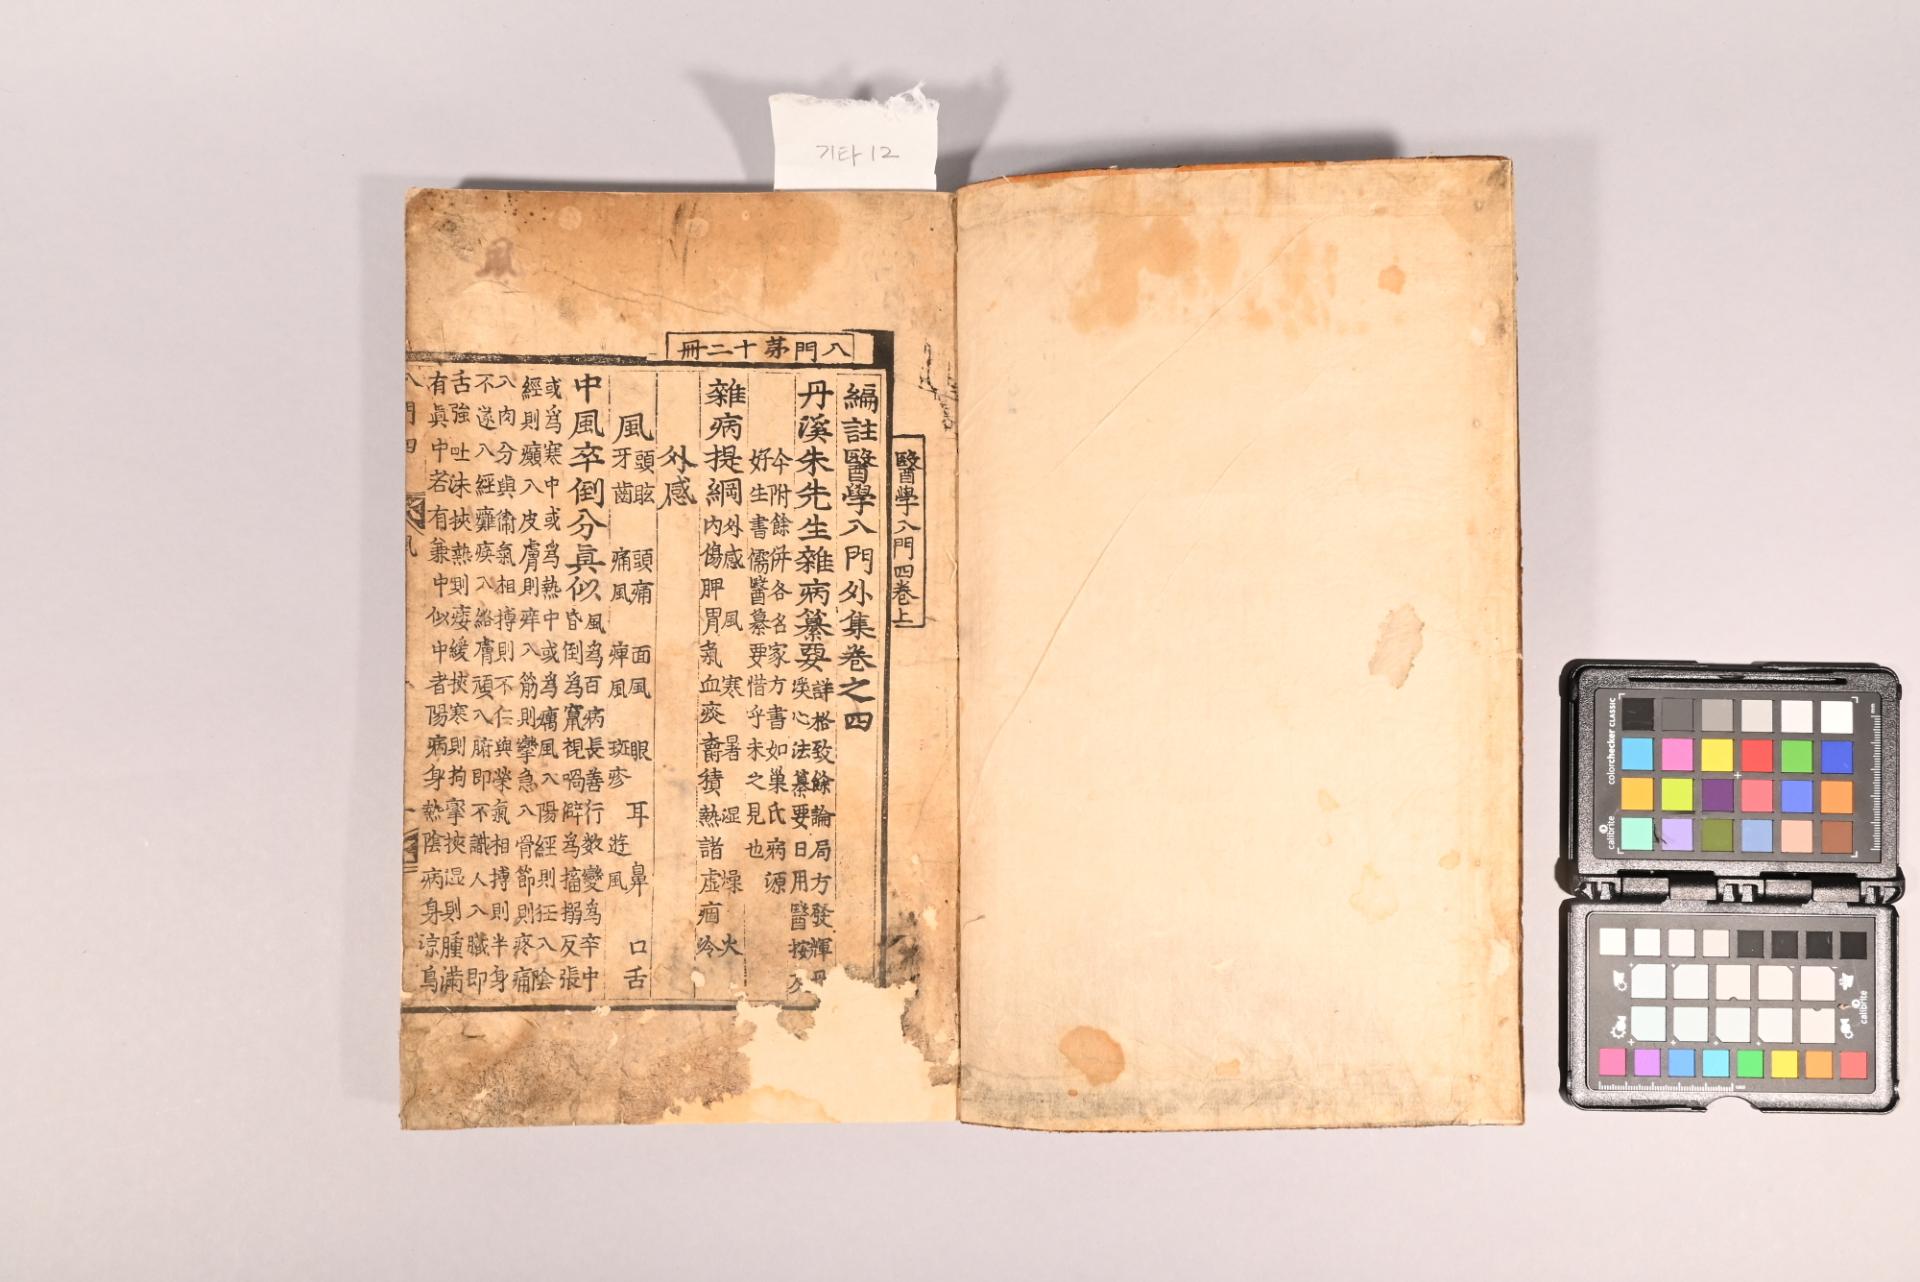 기타 12
八門第十二冊
醫學入門四卷上
編註醫學入門外集卷之四
丹溪朱先生雜病纂要
詳格致餘論局方發輝丹
溪心法纂要日用醫按
今附餘併各名家方書如巢氏病源
好生書儒醫纂要惜乎未之見也
雜病提綱
外感 風 寒 暑 湿 燥 火
內傷脾胃氣血痰鬱積熱諸虛痼冷
外感
風
頭眩 頭痛 面風 眼 耳 鼻 口舌
牙齒 痛風 痺風 斑疹 遊風
中風卒倒分眞似
風爲百病長善行數變爲卒中
昏倒爲竄視喎僻爲搐搦反張
或爲寒中或爲熱中或爲癘風入陽經則狂入陰
經則癲入皮膚則痺入筋則攣急入骨節則疼痛
入肉分與衛氣相搏則不仁與榮氣相搏則半身
不遂入經癱瘓入絡膚頑入腑即不識人入臟即
舌強吐沫挾熱則痿緩挾寒則拘攣挾湿則腫滿
有眞中若有兼中似中者陽病身熱陰病身凉
八門四
風
colorchecker CLASSIC
calibrite
mm
calibrite